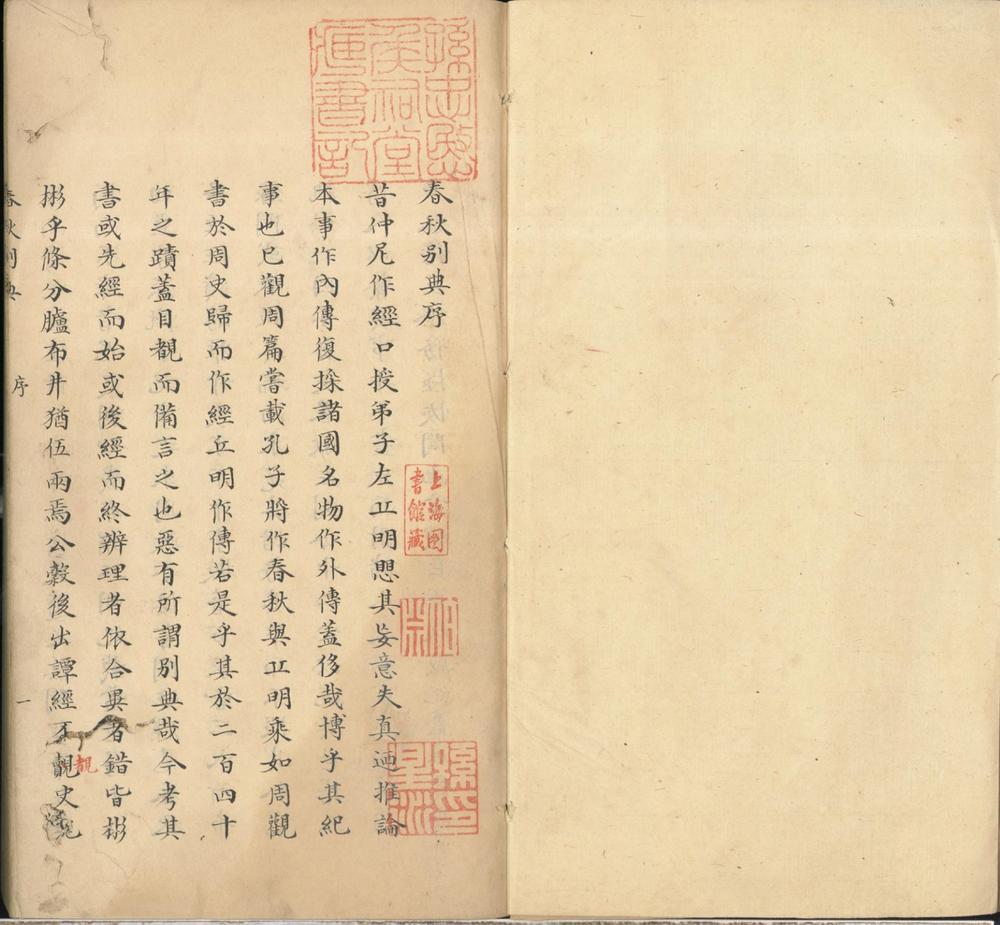 春秋别典序
昔仲尼作經口授弟子左丘明思其妄意失真迺推論
本事作內傳復採諸國名物作外傳蓋侈哉博乎其紀
事也已觀周篇嘗載孔子將作春秋與丘明乘如周觀
書於周史歸而作經丘明作傳若是乎其於二百四十
年之蹟蓋目覩而備言之也惡有所謂别典哉今考其
書或先經而始或後經而終辨理者依合異者錯皆彬
彬乎條分臚布井猶伍兩焉公穀後出譚經不覩史
覩
春秋别典
序
一
孫忠愍
侯祠堂
藏書記
上海圖
書館藏
孫印
星衍